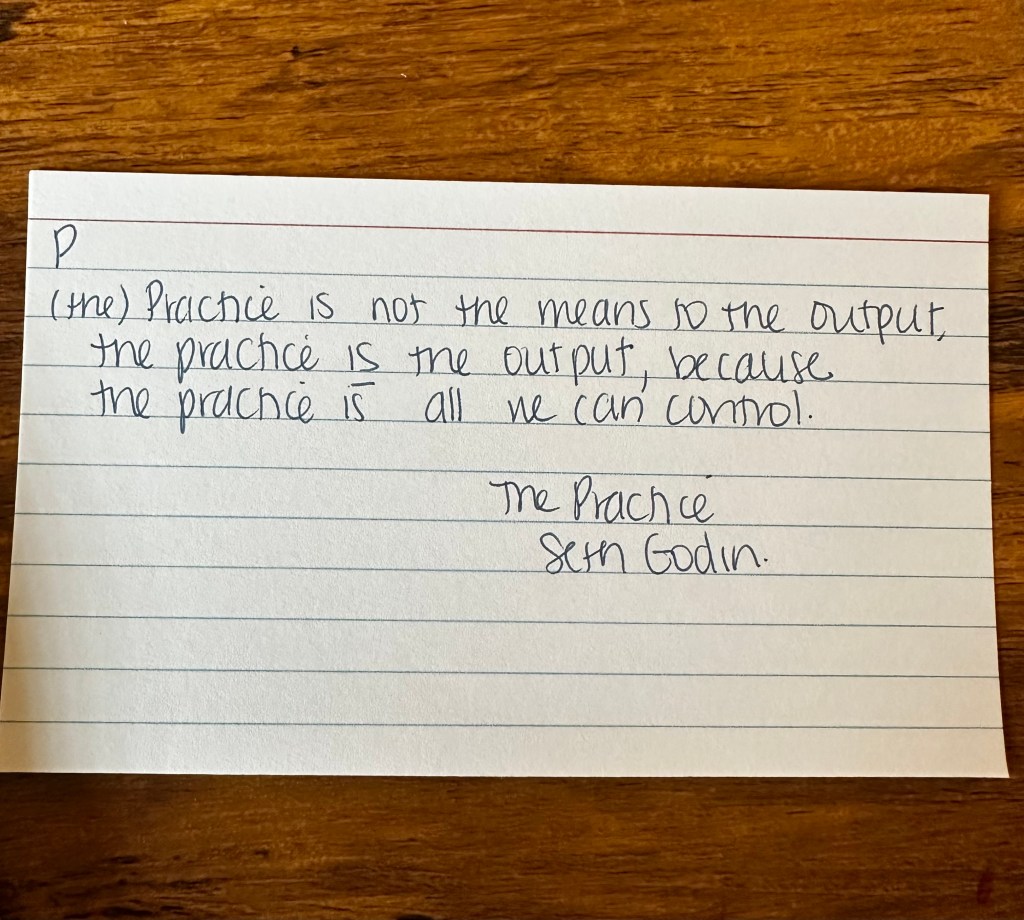 P
(the) Practice is not the means to the output,
the practice is the output, because
the practice is all we can control.
The Practice
Seth Godin.